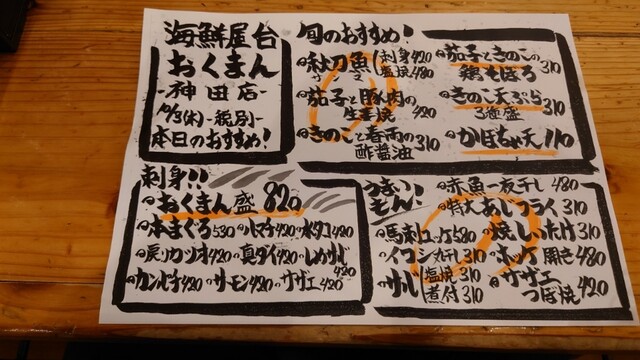 海鮮屋台
おくまん
-神田店-
10/3(木)-税別-
本日のおすすめ!
旬のおすすめ!
秋刀魚(刺身420
塩焼480
サンマ
茄子と豚肉の
生姜焼 420
きのこと春雨の310
酢醤油
茄子ときのこの
鶏そぼろ310
きのこ天ぷら
3種盛 310
かぼちゃ天110
刺身!!
おくまん盛 820
本まぐろ530 ハマチ420 水タコ420
戻りカツオ420 真ダイ420 しめサバ
420
カンパチ420 サーモン420 サザエ420
うまいもん!
赤魚一夜干し480
特大あじフライ310
馬刺ユッケ580 焼しいたけ310
イワシ丸干し310 ホッケ開き480
サバ(塩焼310
煮付310
サザエ
つぼ焼420